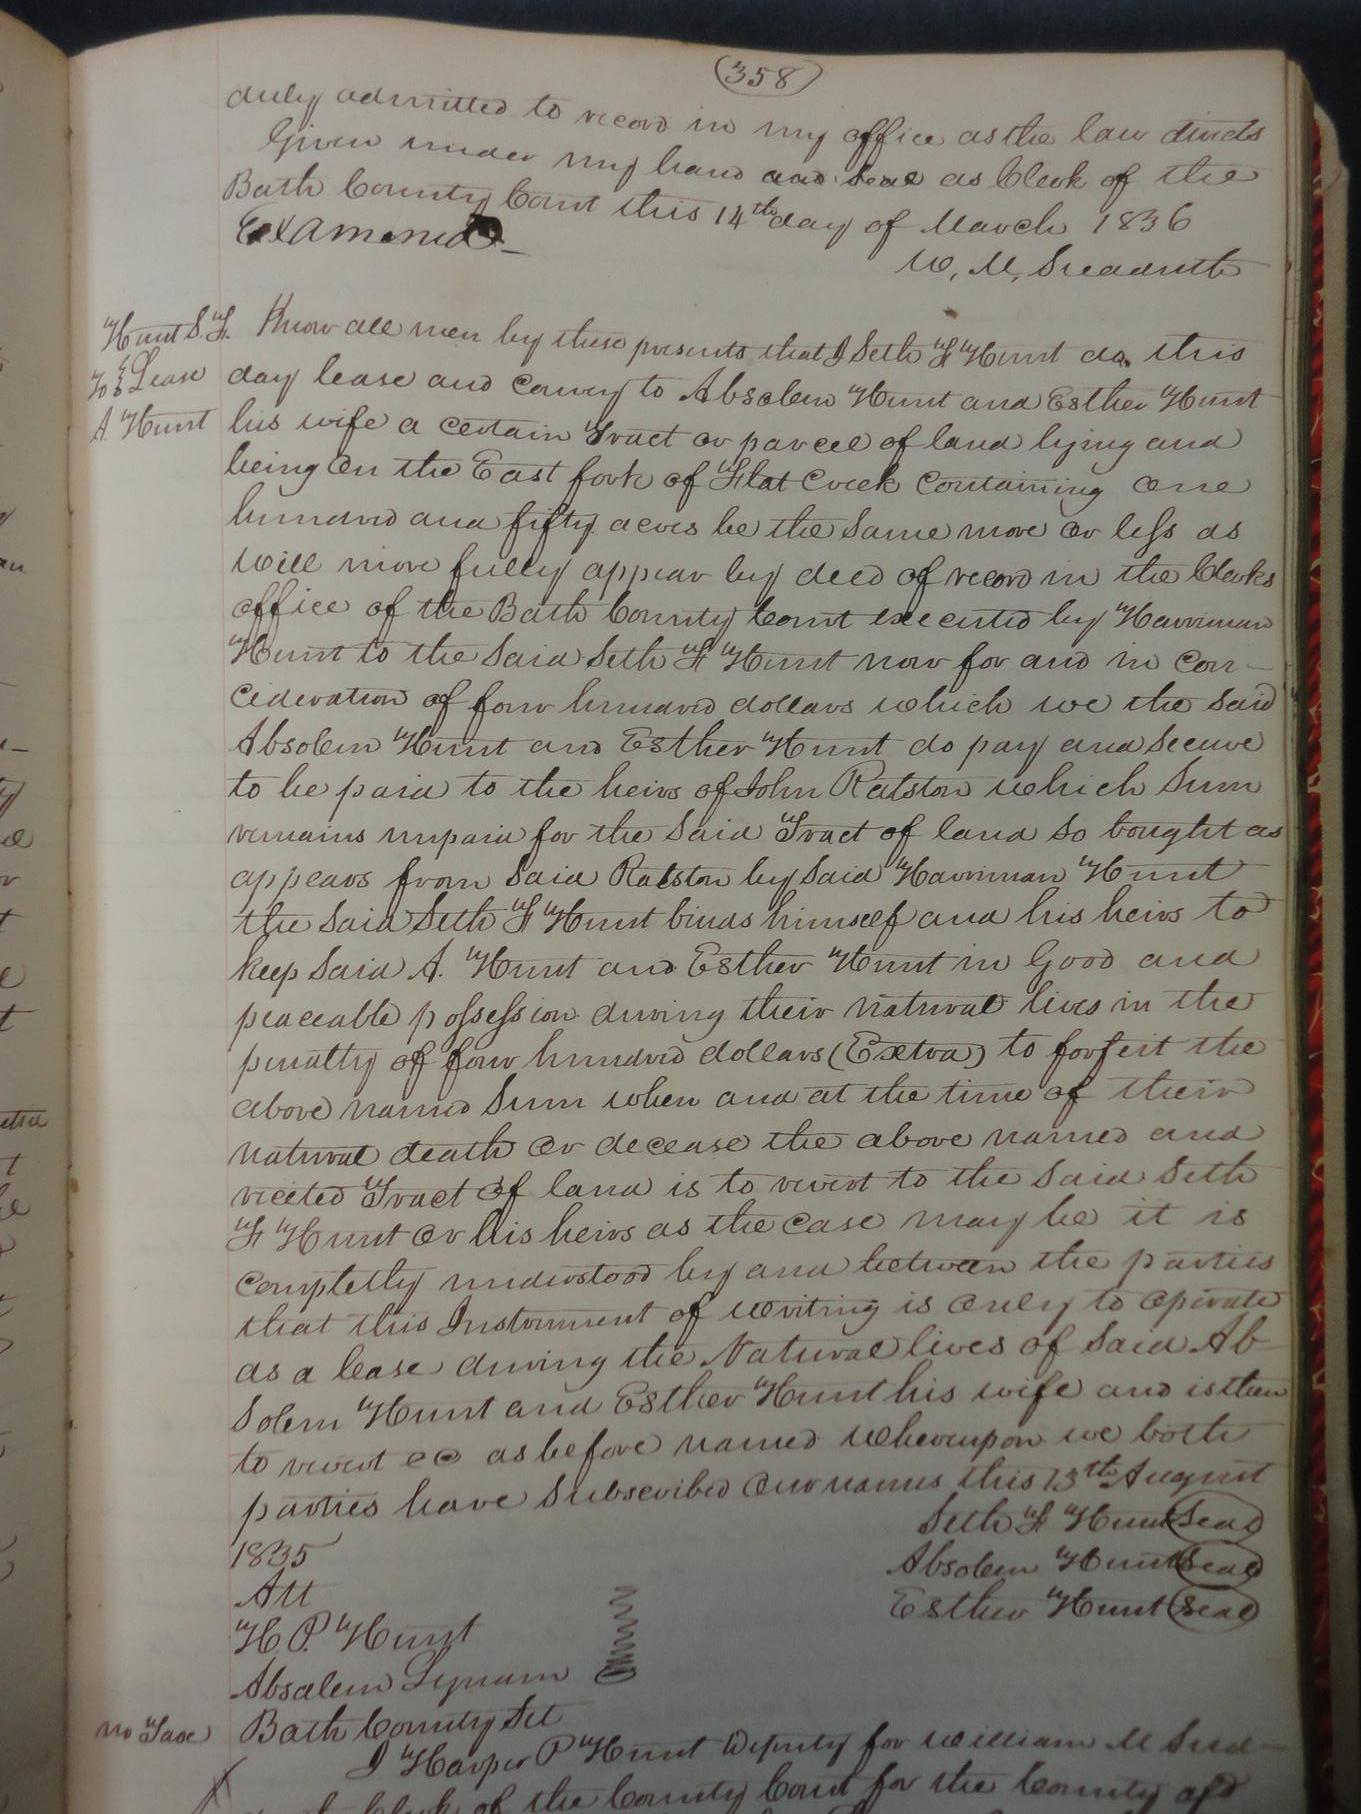 (358)
duly admitted to record in my office as the law directs
Given under my hand and seal as Clerk of the
Bath County Court this 14th day of March 1836
Examined
W. M. Sudduth
Hunt S. F.
To } Lease
A. Hunt
Know all men by these presents that I Seth F Hunt do this
day lease and convey to Absolem Hunt and Esther Hunt
his wife a certain Tract or parcel of land lying and
being on the East fork of Flat Creek containing one
hundred and fifty acres be the same more or less as
will more fully appear by deed of record in the Clerks
office of the Bath County Court executed by Harriman
Hunt to the said Seth F Hunt now for and in con-
cideration of four hundred dollars which we the said
Absolem Hunt and Esther Hunt do pay and secure
to be paid to the heirs of John Ralston which sum
remains unpaid for the said Tract of land so bought as
appears from said Ralston by said Harriman Hunt
the said Seth F Hunt binds himself and his heirs to
keep said A. Hunt and Esther Hunt in Good and
peaceable possession during their natural lives in the
penalty of four hundred dollars (Extra) to forfeit the
above named sum when and at the time of their
natural death or decease the above named and
recited Tract of land is to revert to the said Seth
F Hunt or his heirs as the case may be it is
completly understood by and between the parties
that this Instrument of writing is only to operate
as a lease during the Natural lives of said Ab-
solem Hunt and Esther Hunt his wife and is then
to revert &c as before named whereupon we both
parties have subscribed our names this 13th August
1835
Seth F Hunt Seal
Absolem Hunt Seal
Esther Hunt Seal
Att
H. P. Hunt
Absalem Lynam
no Taxe
Bath County Sct
I Harper P Hunt Deputy for William M Sud-
clerk of the County Court for the County afd